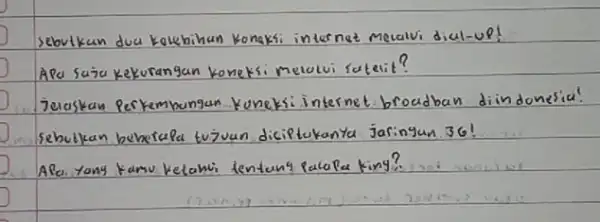 sebutkan dua kelebihan koneksi internet melalui dial-up!
Apa saja kekurangan koneksi melalui satelit?
Jelaskan Perkembangan koneksi internet broadban diindonesia!
sebutkan beberapa tujuan diciptakanya jaringan 3G!
Apa yang kamu ketahui tentang Palapa king?